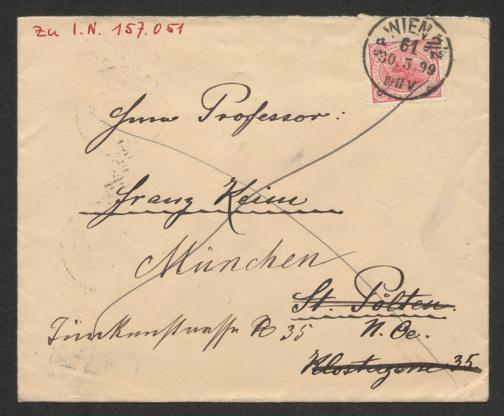 zu I.N. 157.051
WIEN
61
30.5.99
Herrn Professor:
Franz Keim
München
St. Pölten.
35
N. Oe.
35